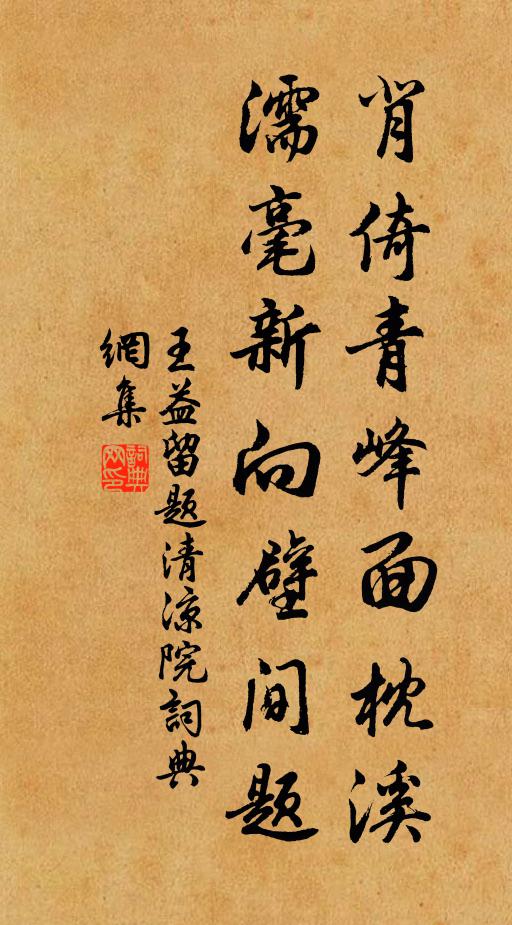 背倚青峰面枕溪
濡毫新向壁间题
王益留题清凉院詞典
網集
詞典网印